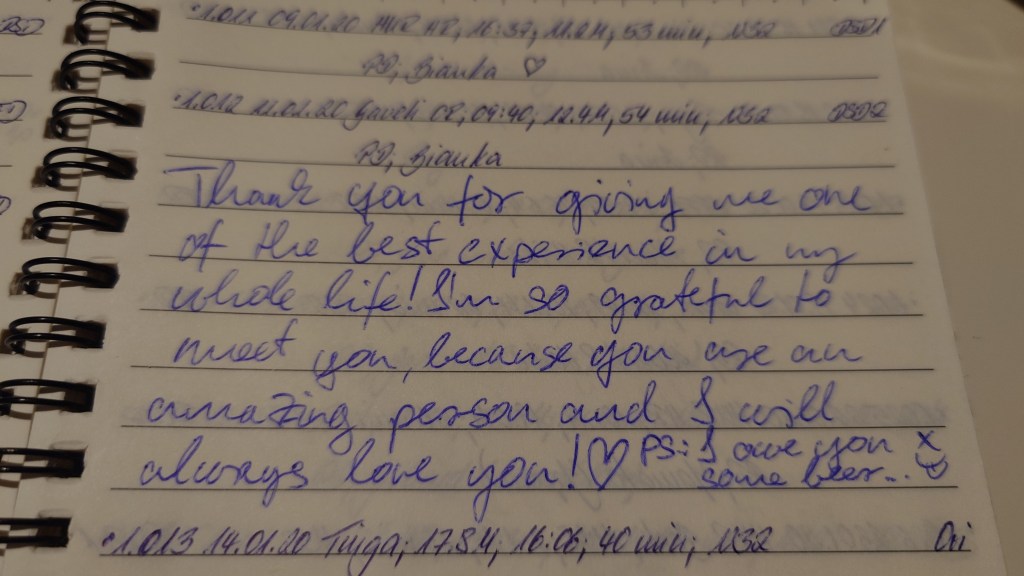 1.011 09.01.20 16:37, 53 min, N32
PD, Bianka ♡
1.012 11.01.20 09:40, 12.4M, 54 min, N32
PD, Bianka
Thank you for giving me one
of the best experience in my
whole life! I'm so grateful to
meet you, because you are an
amazing person and I will
always love you! ♡ PS: I owe you
some beer...
1.013 14.01.20 16:06, 40 min, N32